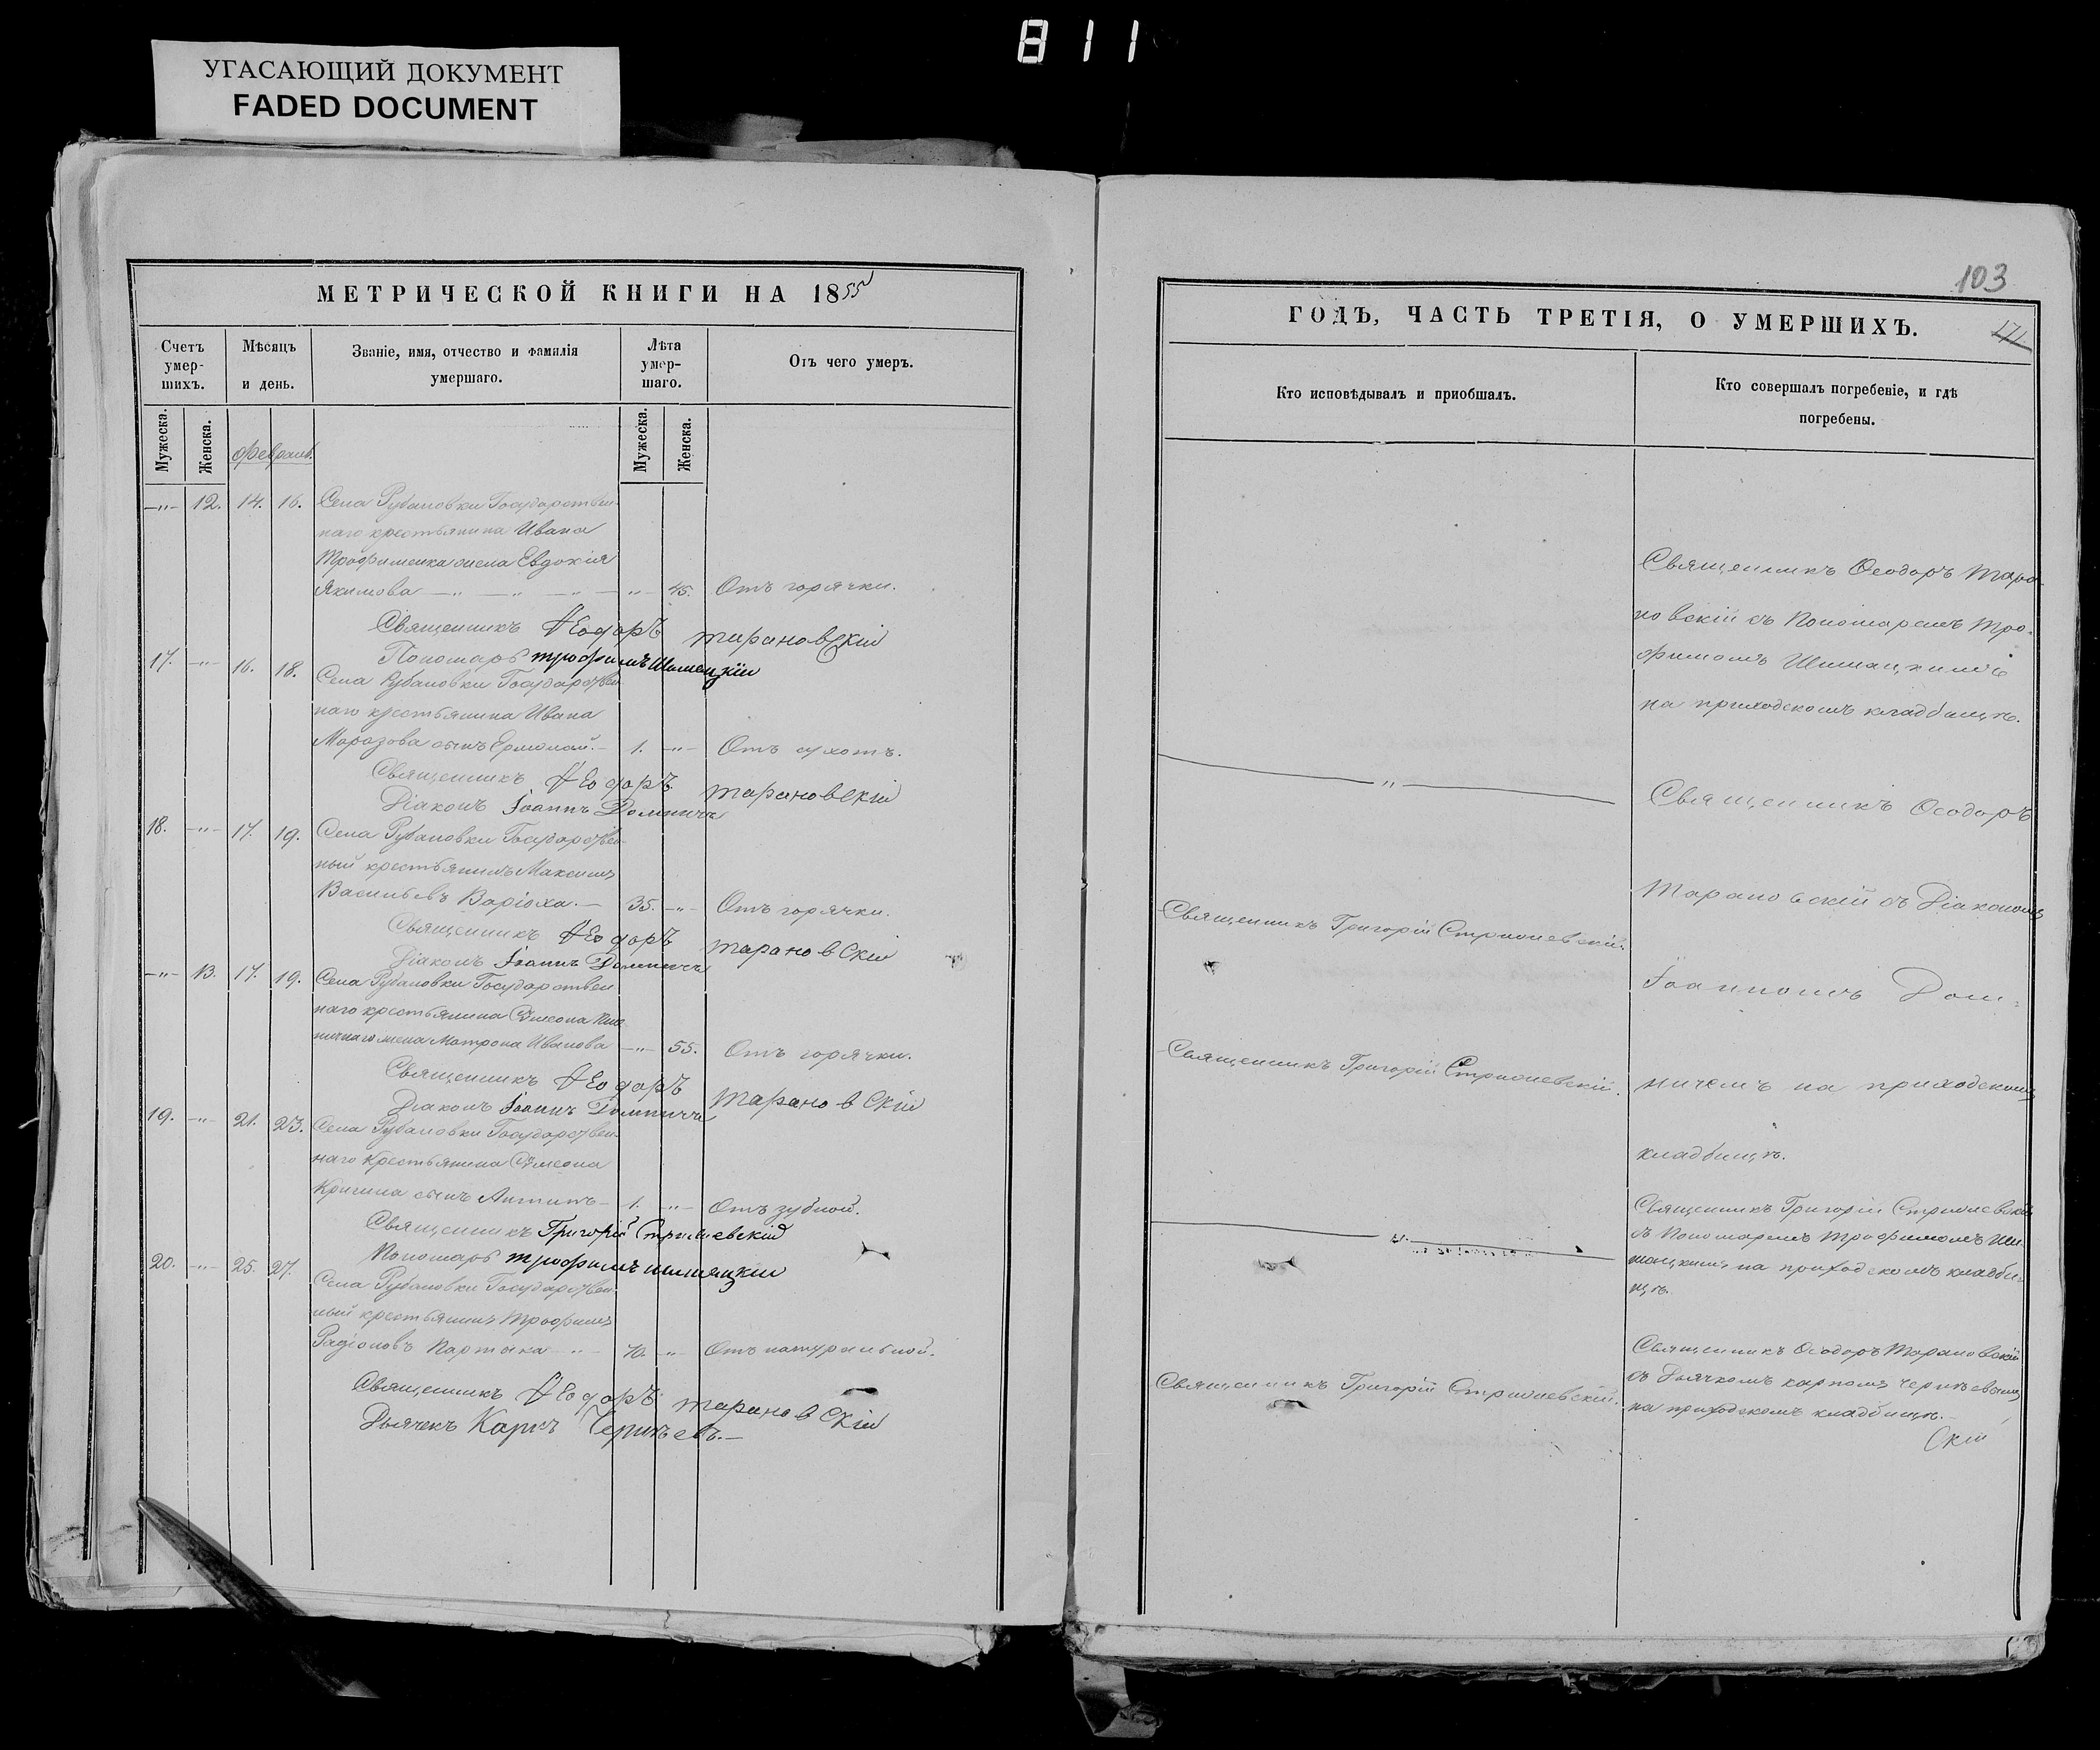 811
УГАСАЮЩИЙ ДОКУМЕНТ
FADED DOCUMENT
МЕТРИЧЕСКОЙ КНИГИ НА 1855
Счетъ умер-шихъ.
Мѣсяцъ и день.
Званіе, имя, отчество и фамилія умершаго.
Лѣта умер-шаго.
Отъ чего умеръ.
Мужеска. Женска.
Февраль.
Мужеска. Женска.
—"— 12. 14. 16. Села Рубановки Государствен-
наго крестьянина Ивана
Трофименка жена Евдокія
Якимова — " — " — " — " — 45. Отъ горячки.
Священникъ Ѳеодоръ Тарановскій
Пономарь Трофимъ Шимацкій
17. —"— 16. 18. Села Рубановки Государствен-
наго крестьянина Ивана
Морозова сынъ Ермолай. — 1. —"— Отъ сухотъ.
Священникъ Ѳеодоръ Тарановскій
Діаконъ Іоаннъ Домничъ
18. —"— 17. 19. Села Рубановки Государствен-
ный крестьянинъ Максимъ
Васильевъ Варіоха. — 35. —"— Отъ горячки.
Священникъ Ѳеодоръ Тарановскій
Діаконъ Іоаннъ Домничъ
—"— 13. 17. 19. Села Рубановки Государствен-
наго крестьянина Сѵмеона
жена Матрона Иванова —"— 55. Отъ горячки.
Священникъ Ѳеодоръ Тарановскій
Діаконъ Іоаннъ Домничъ
19. —"— 21. 23. Села Рубановки Государствен-
наго крестьянина Сѵмеона
сынъ Антипъ — 1. —"— Отъ зубной.
Священникъ Григорій
Пономарь Трофимъ Шимацкій
20. —"— 25. 27. Села Рубановки Государствен-
ный крестьянинъ Трофимъ
Радіоновъ Партыка — " — 70. —"— Отъ натуральной.
Священникъ Ѳеодоръ Тарановскій
Дьячекъ Карпъ
103
171
ГОДЪ, ЧАСТЬ ТРЕТІЯ, О УМЕРШИХЪ.
Кто исповѣдывалъ и приобщалъ.
Кто совершалъ погребеніе, и гдѣ погребены.
Священникъ Ѳеодоръ Тара-
новскій съ Пономаремъ Тро-
фимомъ Шимацкимъ
на приходскомъ кладбищѣ.
— " —
Священникъ Ѳеодоръ
Тарановскій съ Діакономъ
Священникъ Григорій
Іоанномъ Дом-
Священникъ Григорій
ничемъ на приходскомъ
кладбищѣ.
— " —
Священникъ Григорій
съ Пономаремъ Трофимомъ Ши-
мацкимъ на приходскомъ кладби-
щѣ.
Священникъ Григорій
Священникъ Ѳеодоръ Тарановскій
съ Дьячкомъ Карпомъ
на приходскомъ кладбищѣ.
скій